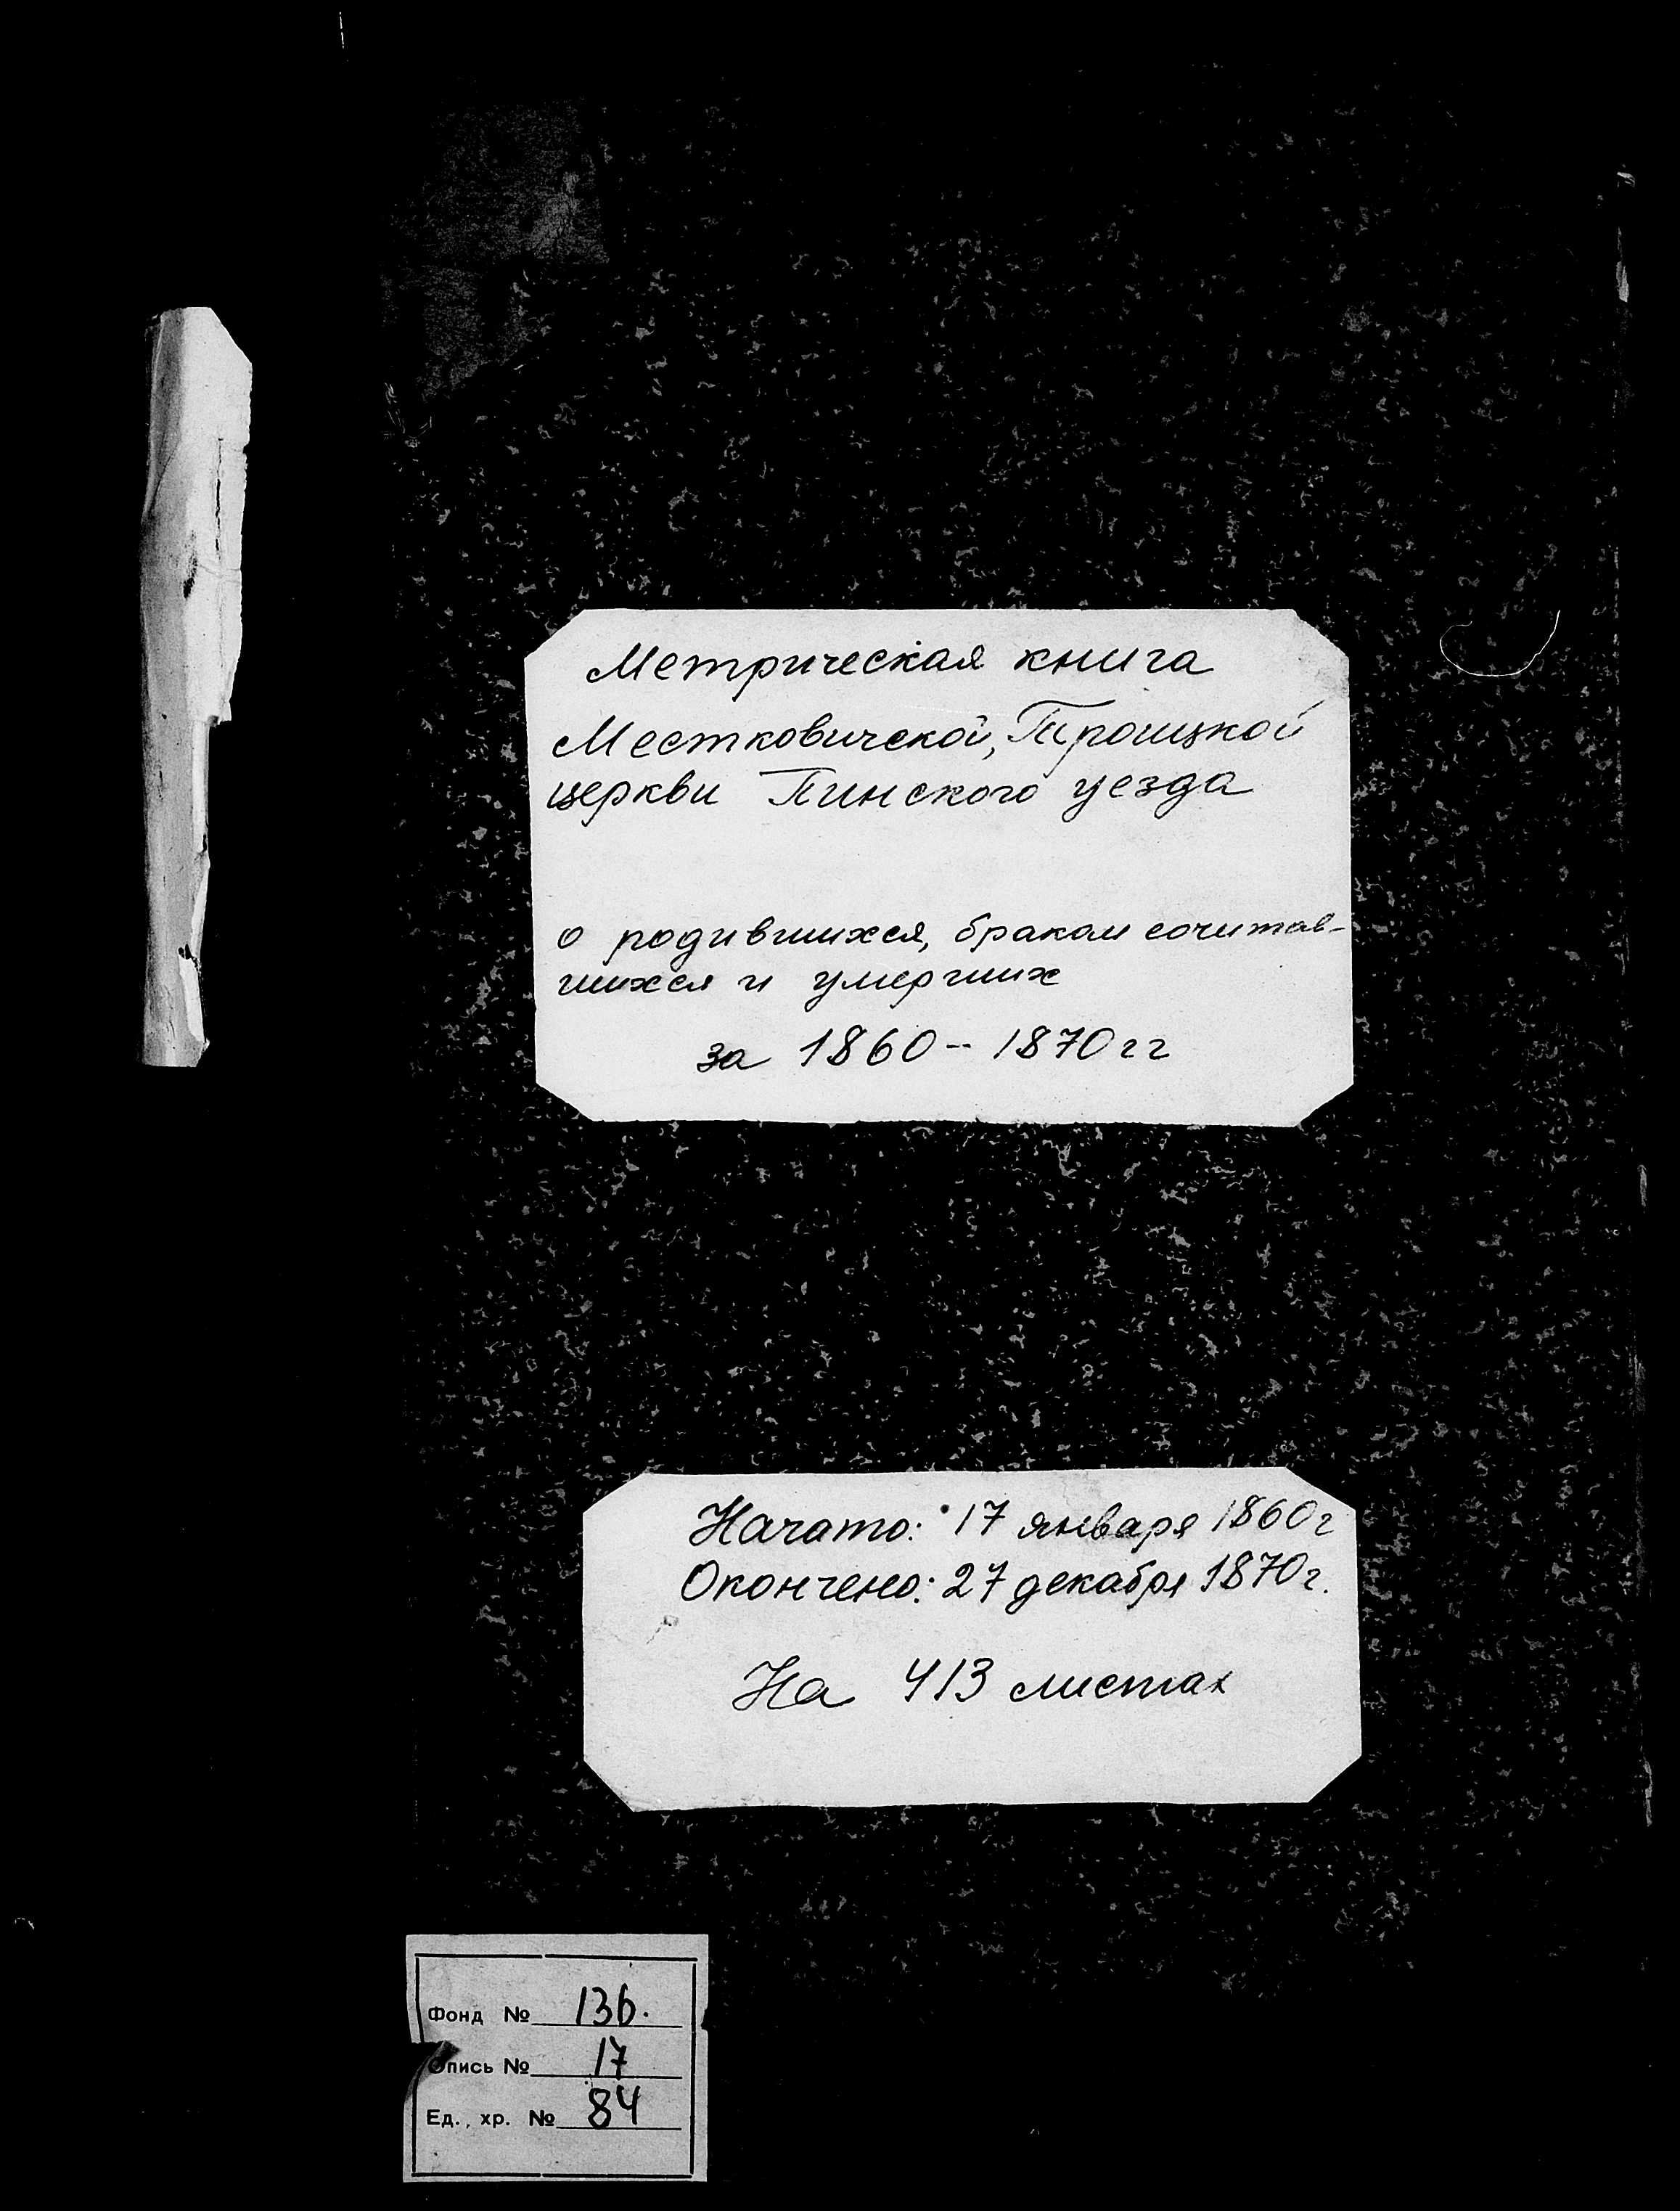 Метрическая книга
Местковичской, Троицкой
церкви Пинского уезда
о родившихся, браком сочитав-
шихся и умерших
за 1860-1870 гг
Начато: 17 января 1860 г
Окончено: 27 декабря 1870 г.
На 413 листах
Фонд № 136.
Опись № 17
Ед., хр. № 84